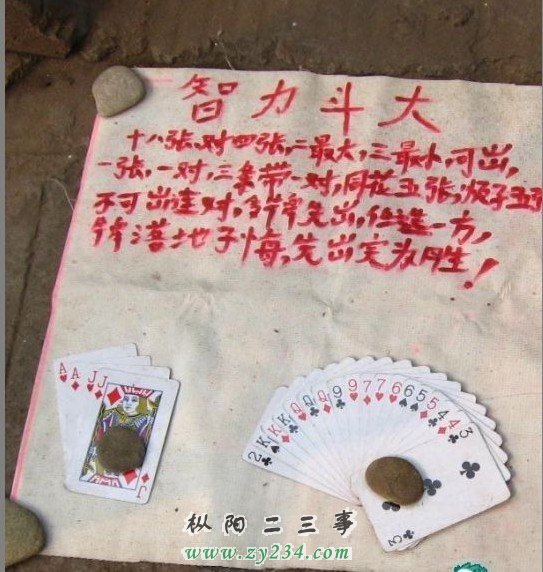 智力斗大
十八张、对四张,二最大,三最小,可出,
一张,一对,三条带一对,同花五张,顺子五
不可出连对,多牌先出,任选一方,
牌落地子悔,先出完为胜!
A A J J
J
2 K K K Q Q Q 9 9 7 7 6 6 5 5 4 4 3
3
枞阳二三事
www.zy234.com